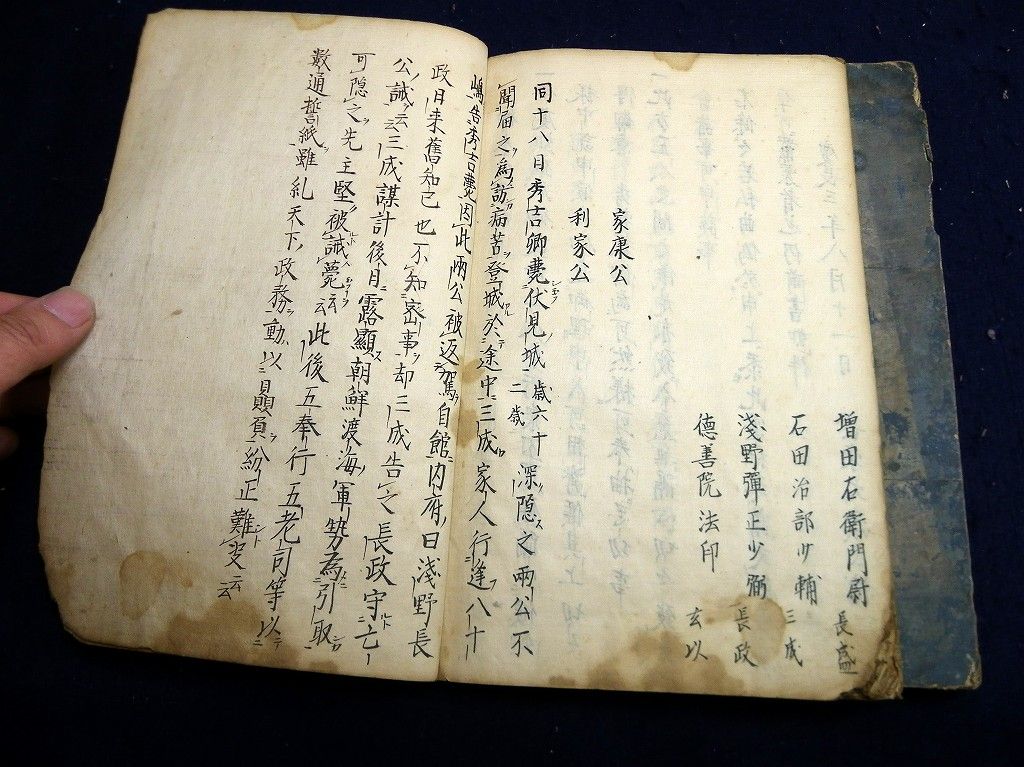 増田右衛門尉 長盛
石田治部少輔 三成
淺野彈正少弼 長政
德善院法印 玄以
家康公
利家公
同十八日秀吉卿薨伏見城 歳六十二歳 深隠之兩公不
聞届之為訪病苦登城於途中三成家人行逢八十
嶋告秀吉薨因此兩公被返駕自館内府曰淺野長
政日来舊知己也不知密事却三成告之長政守亡
公誡云云三成謀計後日露顯朝鮮渡海軍勢為引取
可隠之先主堅被誡薨云云此後五奉行五老司等以
數通誓紙雖糺天下政務動以贔負紛正難定云云